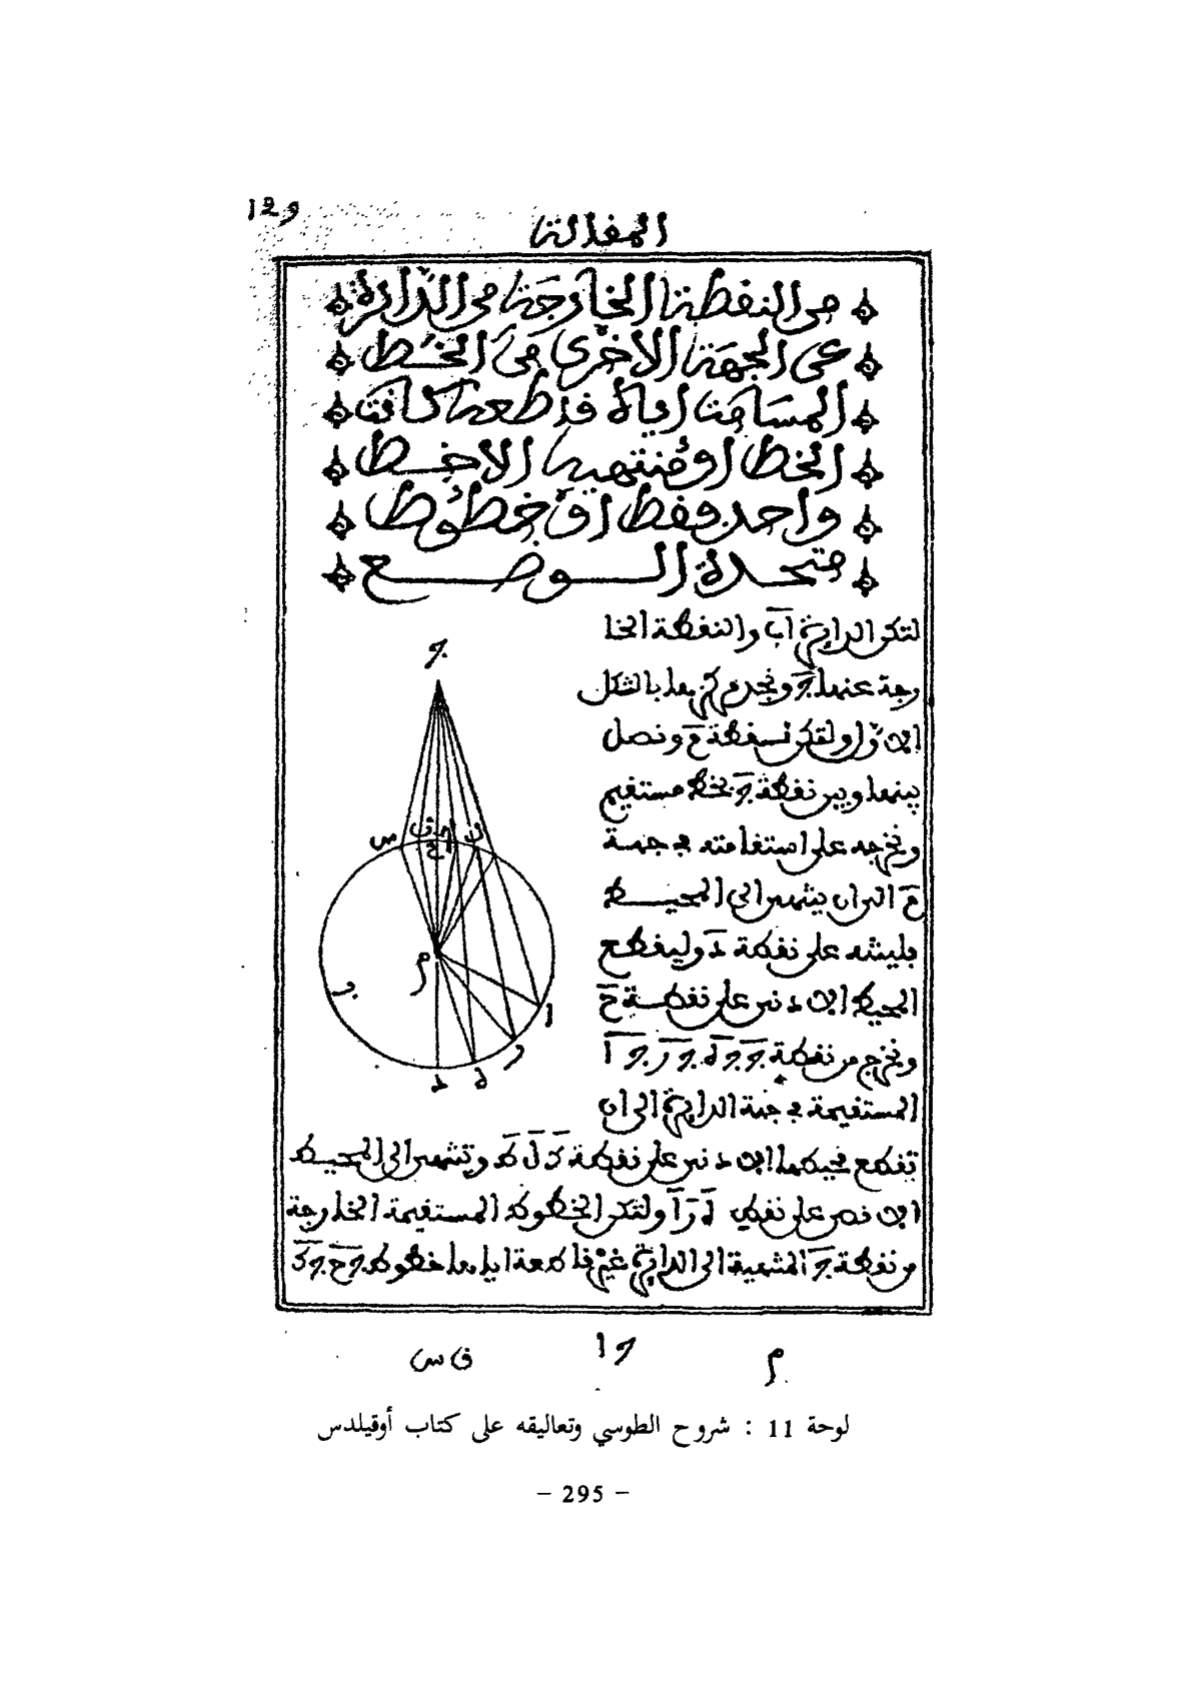 129
المقالة
من النقطة الخارجة من الدائرة
عن الجهة الاخرى من الخط
المسامت اياه قاطعة كانت
الخط او منتهية الا خط
واحد فقط او خطوط
متحدة الوضع
لتكن الدايرة اب والنقطة الخا
رجة عنها ج ونجد مركزها بالشكل
الاول ولتكن نقطة م ونصل
بينها وبين نقطة ج بخط مستقيم
ونخرجه على استقامته في جهة
م الى ان ينتهي الى المحيط
فلينته على نقطة د وليقطع
المحيط الادنى على نقطة ح
ونخرج من نقطة ج ج ه ج ر ج ا
المستقيمة في جهة الدايرة الى ان
تقطع محيطها الادنى على نقطة ك ل ط وتنتهي الى المحيط
الاقصى على نقط ه ر ا ولتكن الخطوط المستقيمة الخارجة
من نقطة ج المنتهية الى الدايرة غير قاطعة اياها خطوط ج ح ج ك
ج
س
ن
م
ب
ا
ر
ه
د
م
ج ا
ن س
لوحة 11 : شروح الطوسي وتعاليقه على كتاب أوقيلدس
– 295 –